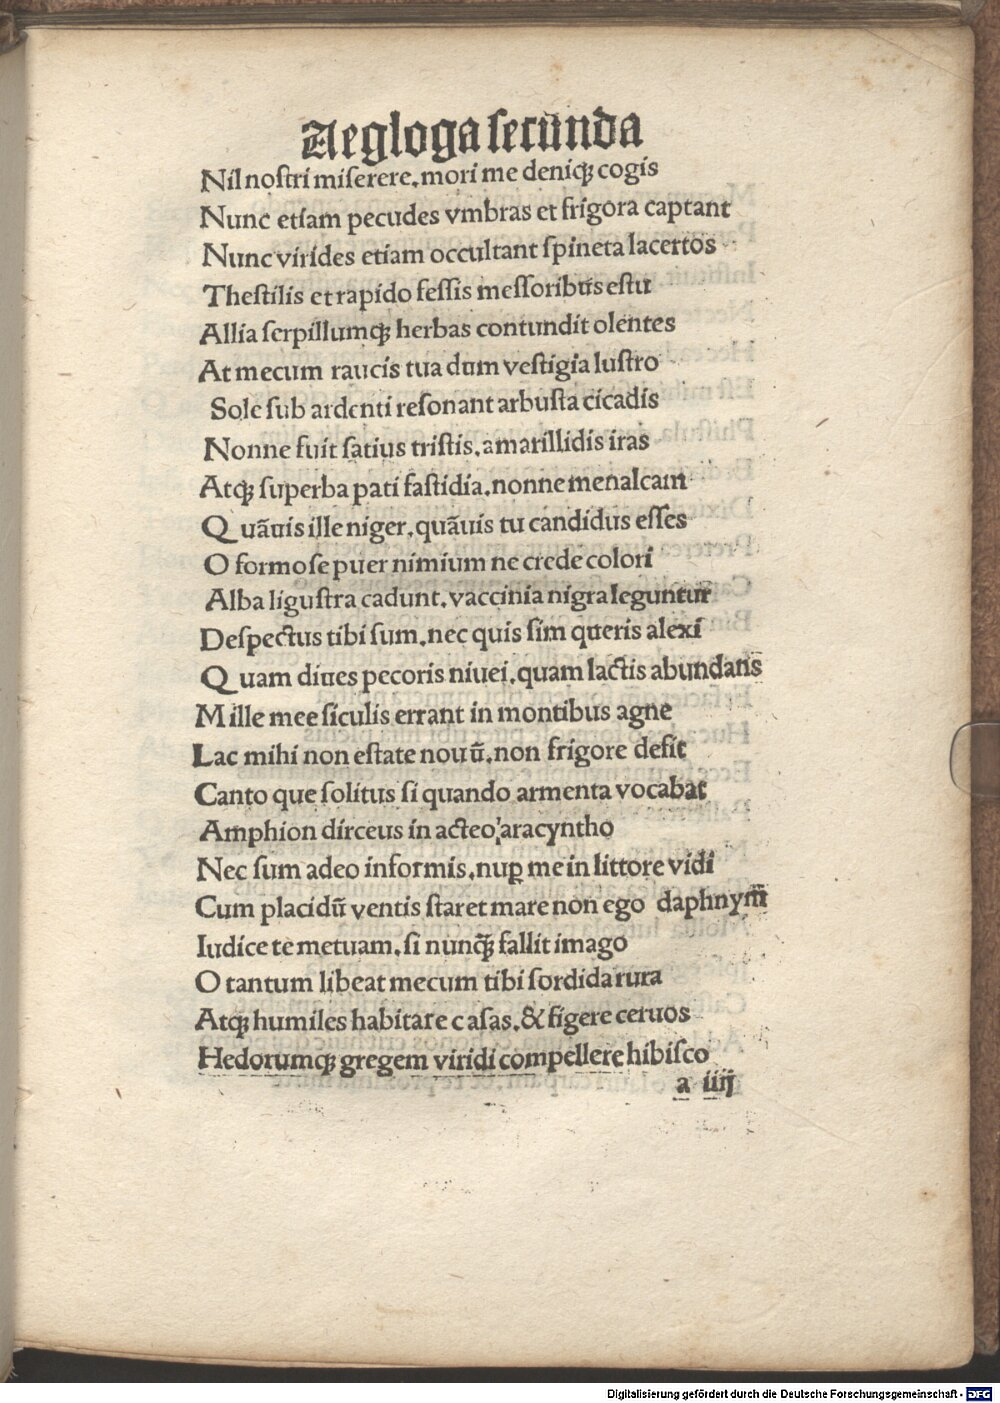 Aegloga secūnda
Nil noſtri miſerere.mori me deniqꝫ cogis
Nunc etiam pecudes vmbras et frigora captant
Nunc virides etiam occultant ſpineta lacertos
Theſtilis et rapido feſſis meſſoribus eſtu
Allia ſerpillumqꝫ herbas contundit olentes
At mecum raucis tua dum veſtigia luſtro
Sole ſub ardenti reſonant arbuſta cicadis
Nonne fuit ſatius triſtis.amarillidis iras
Atqꝫ ſuperba pati faſtidia.nonne menalcam
Quāuis ille niger.quāuis tu candidus eſſes
O formoſe puer nimium ne crede colori
Alba liguſtra cadunt.vaccinia nigra leguntur
Deſpectus tibi ſum.nec quis ſim queris alexi
Quam diues pecoris niuei.quam lactis abundans
Mille mee ſiculis errant in montibus agne
Lac mihi non eſtate nouū.non frigore defit
Canto que ſolitus ſi quando armenta vocabat
Amphion dirceus in acteo aracyntho
Nec ſum adeo informis.nuꝑ me in littore vidi
Cum placidū ventis ſtaret mare non ego daphnym
Iudice te metuam.ſi nunqꝫ̄ fallit imago
O tantum libeat mecum tibi ſordida rura
Atqꝫ humiles habitare caſas.& figere ceruos
Hedorumqꝫ gregem viridi compellere hibiſco
a iiij
Digitalisierung gefördert durch die Deutsche Forschungsgemeinschaft - DFG